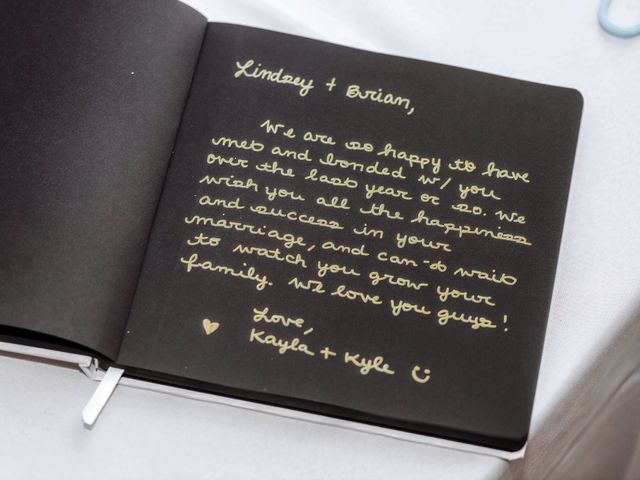 Lindsey + Brian,
We are so happy to have
met and bonded w/ you
over the last year or so. We
wish you all the happiness
and success in your
marriage, and can't wait
to watch you grow your
family. We love you guys!
Love,
Kayla + Kyle